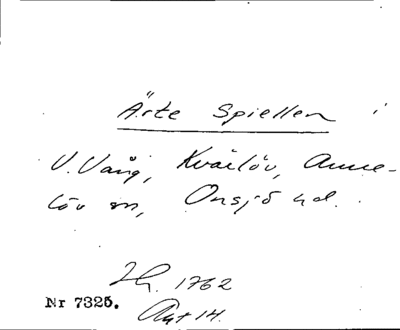 Ärte Spiellen i
V. Vång, Kvärlöv, Anne-
löv sn, Onsjö hd.
Lh. 1762
Akt 14.
Nr 7325.